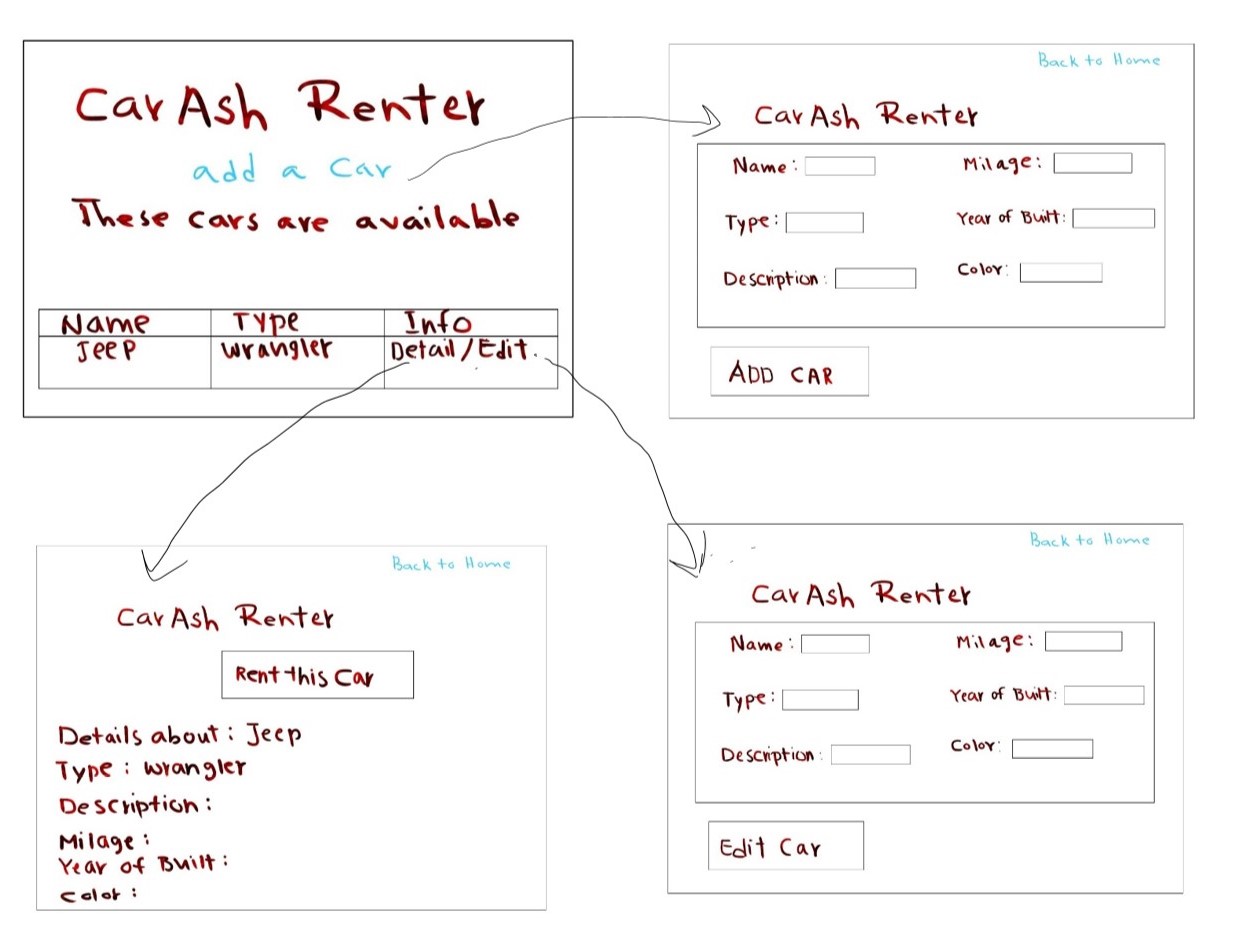 CarAsh Renter
add a Car
These cars are available
Name Type Info
Jeep Wrangler Detail/Edit.
Back to Home
CarAsh Renter
Name: Milage:
Type: Year of Built:
Description: Color:
ADD CAR
Back to Home
CarAsh Renter
Rent this Car
Details about: Jeep
Type: Wrangler
Description:
Milage:
Year of Built:
Color:
Back to Home
CarAsh Renter
Name: Milage:
Type: Year of Built:
Description: Color:
Edit Car